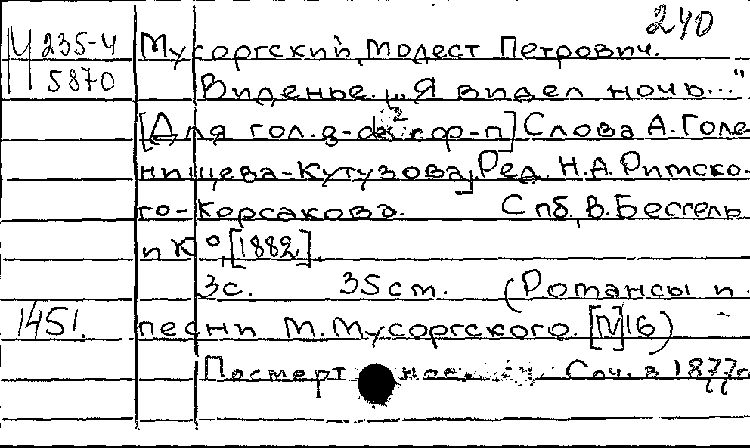 240
М 235-4 Мусоргский, Модест Петрович.
5870 Виденье. „Я видел ночь..."
[Для гол. в-d² с ф-п] Слова А. Голе
нищева-Кутузова, Ред. Н.А. Римско-
го-Корсакова. Спб, В. Бессель
и К⁰, [1882].
3с. 35см. (Романсы и
1451. песни М. Мусоргского. [№]16)
Посмерт Соч. в 1877г